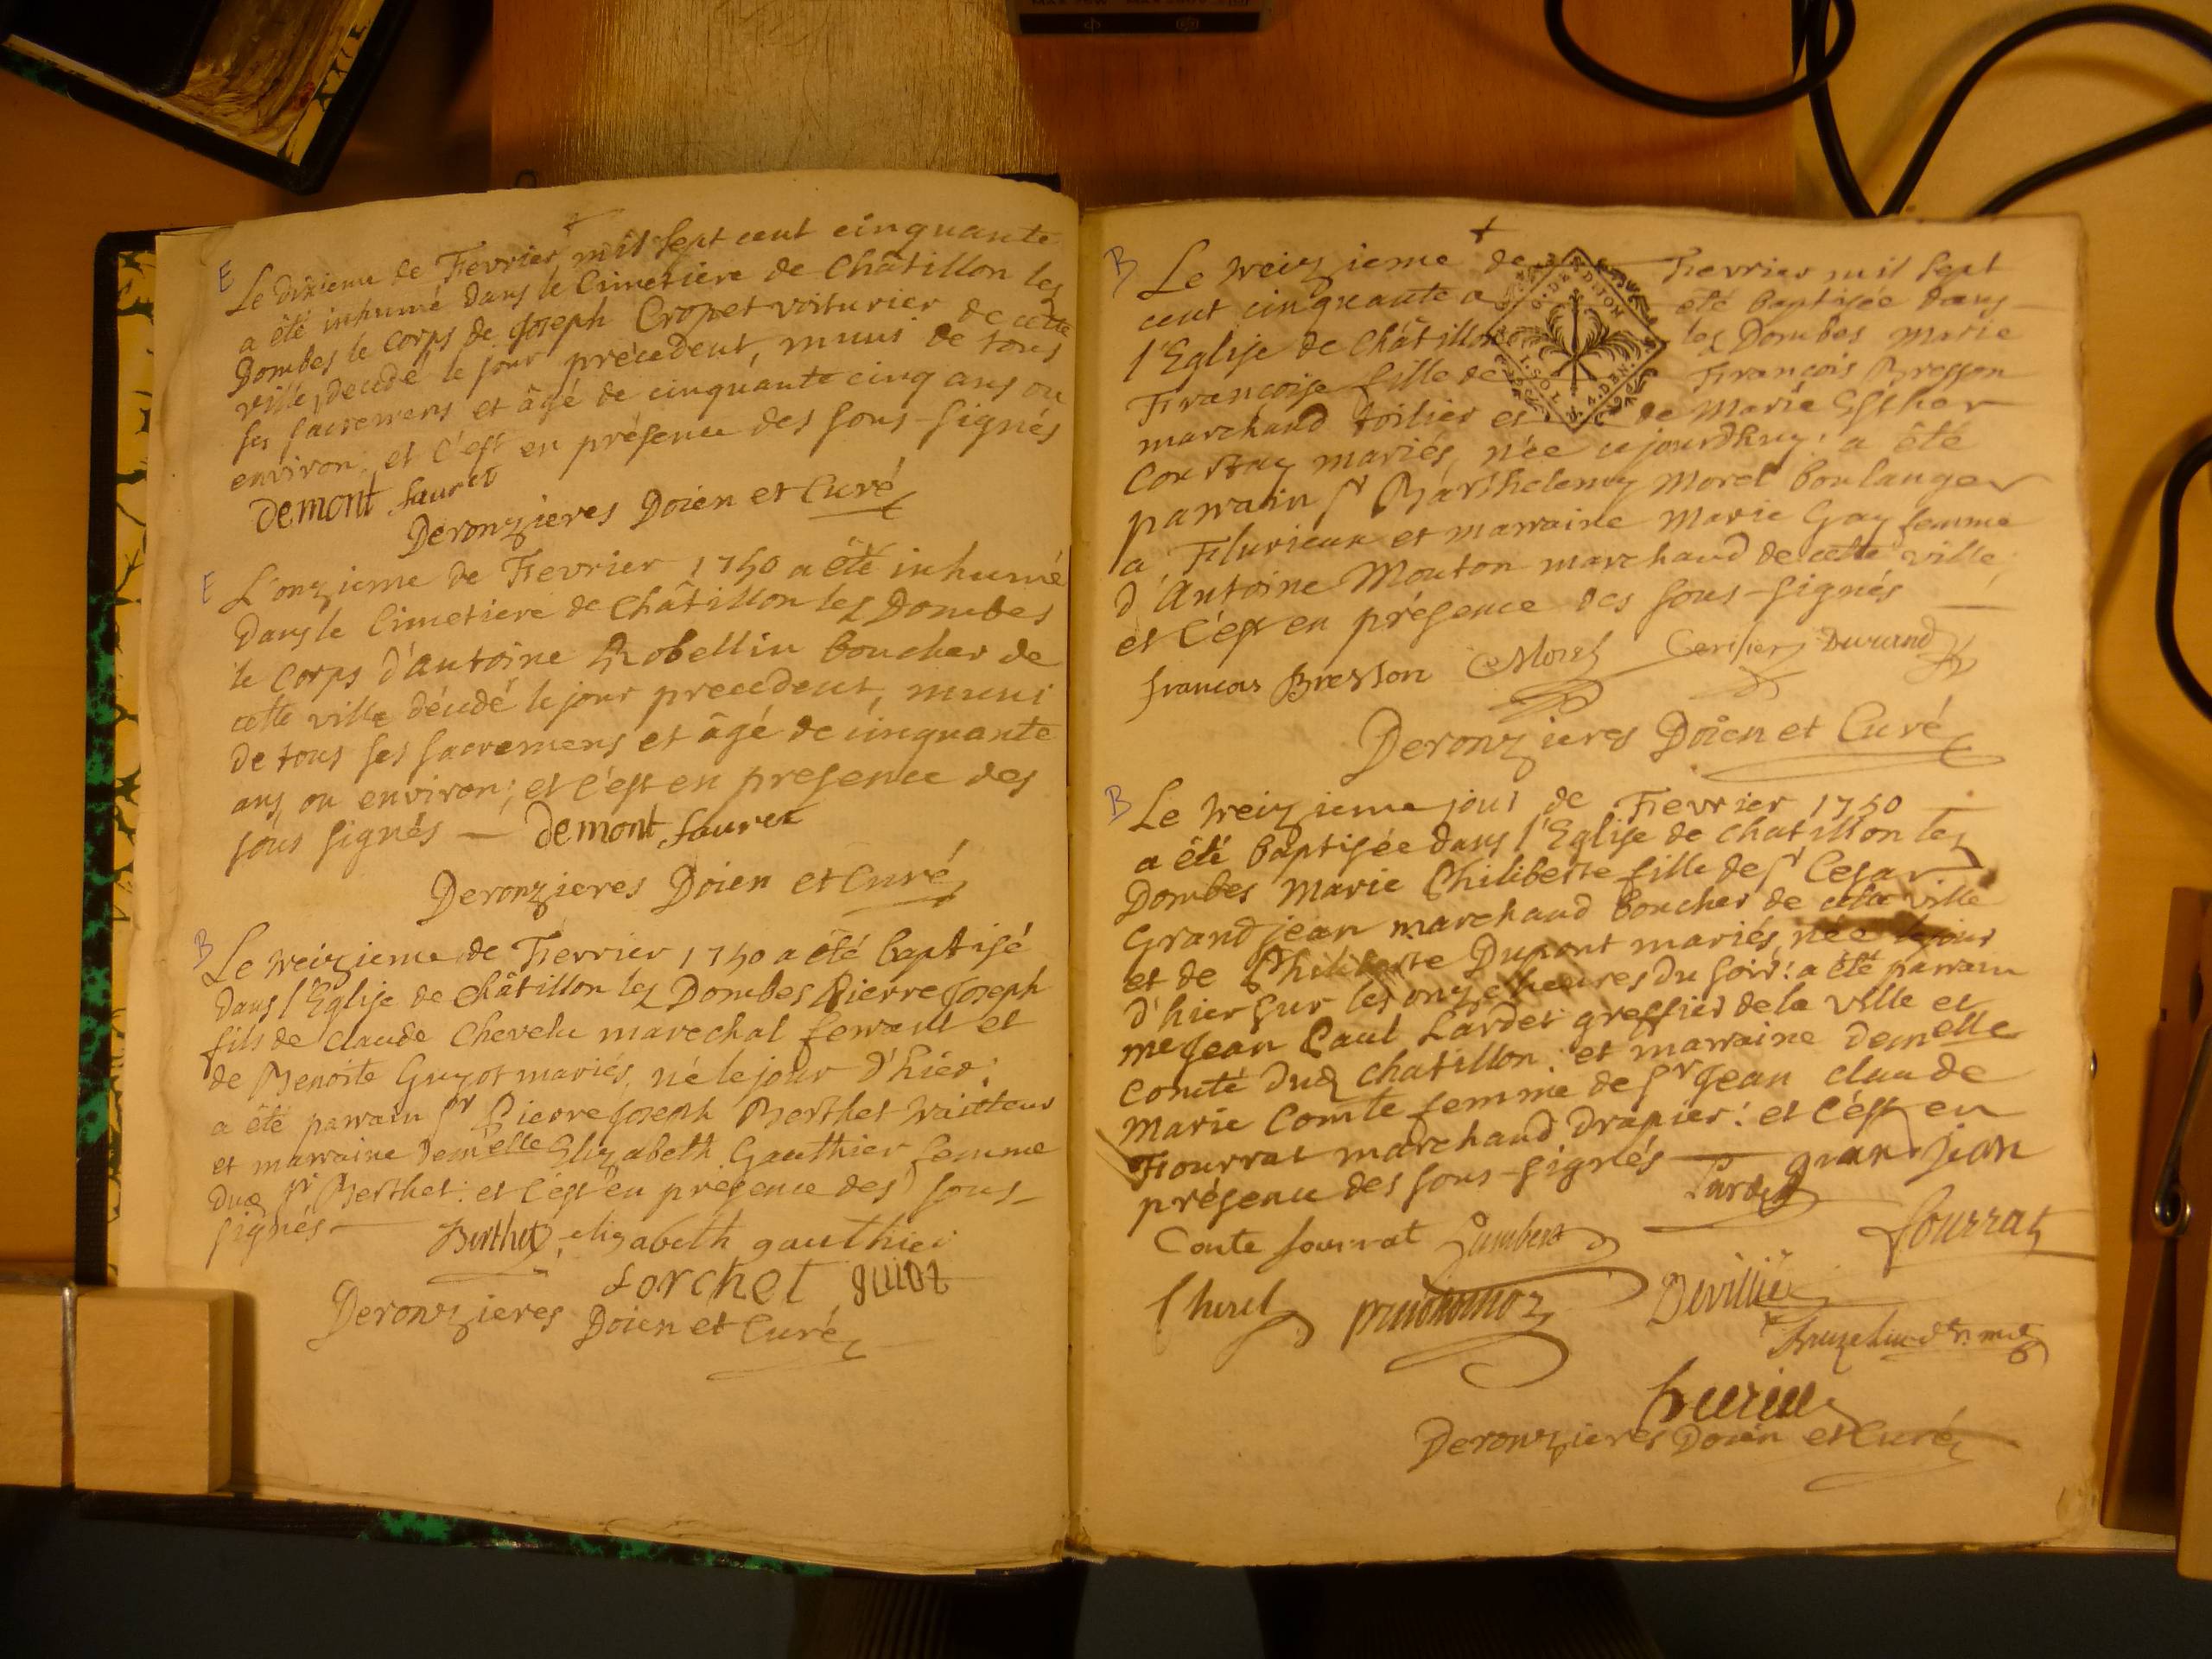 E
Le dixieme de Fevrier mil sept cent cinquante
a été inhumé dans le Cimetiere de Châtillon les
Dombes le corps de Joseph Cropet voiturier de cette
ville, décédé le jour précedent, muni de tous
ses sacremens et âgé de cinquante cinq ans ou
environ, et c'est en présence des sous-signés
Demont Sauret
Deronzieres Doien et Curé
E
L'onzieme de Fevrier 1750 a été inhumé
dans le Cimetiere de Châtillon les Dombes
le corps d'Antoine Robellin boucher de
cette ville décédé le jour precedent, muni
de tous ses sacremens et âgé de cinquante
ans, ou environ; et c'est en presence des
sous signés — Demont Sauret
Deronzieres Doien et Curé
B
Le treizieme de Fevrier 1750 a été baptisé
dans l'Eglise de Châtillon les Dombes Pierre Joseph
fils de Claude Chevelu marechal ferrant et
de Benoite Guyot mariés, né le jour d'hier.
a été parrain sr Pierre Joseph Berthet traitteur
et marraine demelle Elizabeth Gauthier femme
dud sr Berthet: et c'est en presence des sous-
signés — Berthet elizabeth gauthier
Lorchet guiot
Deronzieres Doien et Curé
B
Le treizieme de Fevrier mil sept
cent cinquante a été baptisée dans
l'Eglise de Châtillon les Dombes Marie
Françoise fille de François Bresson
marchand toilier et de Marie Esther
Courtay mariés, née cejourdhuy: a été
parrain sr Barthelemy Morel boulanger
a Flurieux et marraine Marie Gay femme
d'Antoine Mouton marchand de cette ville
et c'est en présence des sous-signés
francois Bresson Morel Cerisier Durand
Deronzieres Doien et Curé
B
Le treizieme jour de Fevrier 1750
a été baptisée dans l'Eglise de Chatillon les
Dombes Marie Philiberte fille de sr Cesar
Grandjean marchand boucher de cette ville
et de Philiberte Dupont mariés, née le jour
d'hier sur les onze heures du soir: a été parrain
me Jean Paul Lardet greffier de la ville et
Comté dud Chatillon: et marraine demelle
Marie Comte femme de sr Jean Claude
Fourrat marchand drapier: et c'est en
présence des sous-signés — granjean
Lardet
Conte fourrat Jambert fourrat
Cherel prudhomoz Devillié
Deronzieres Doien et Curé